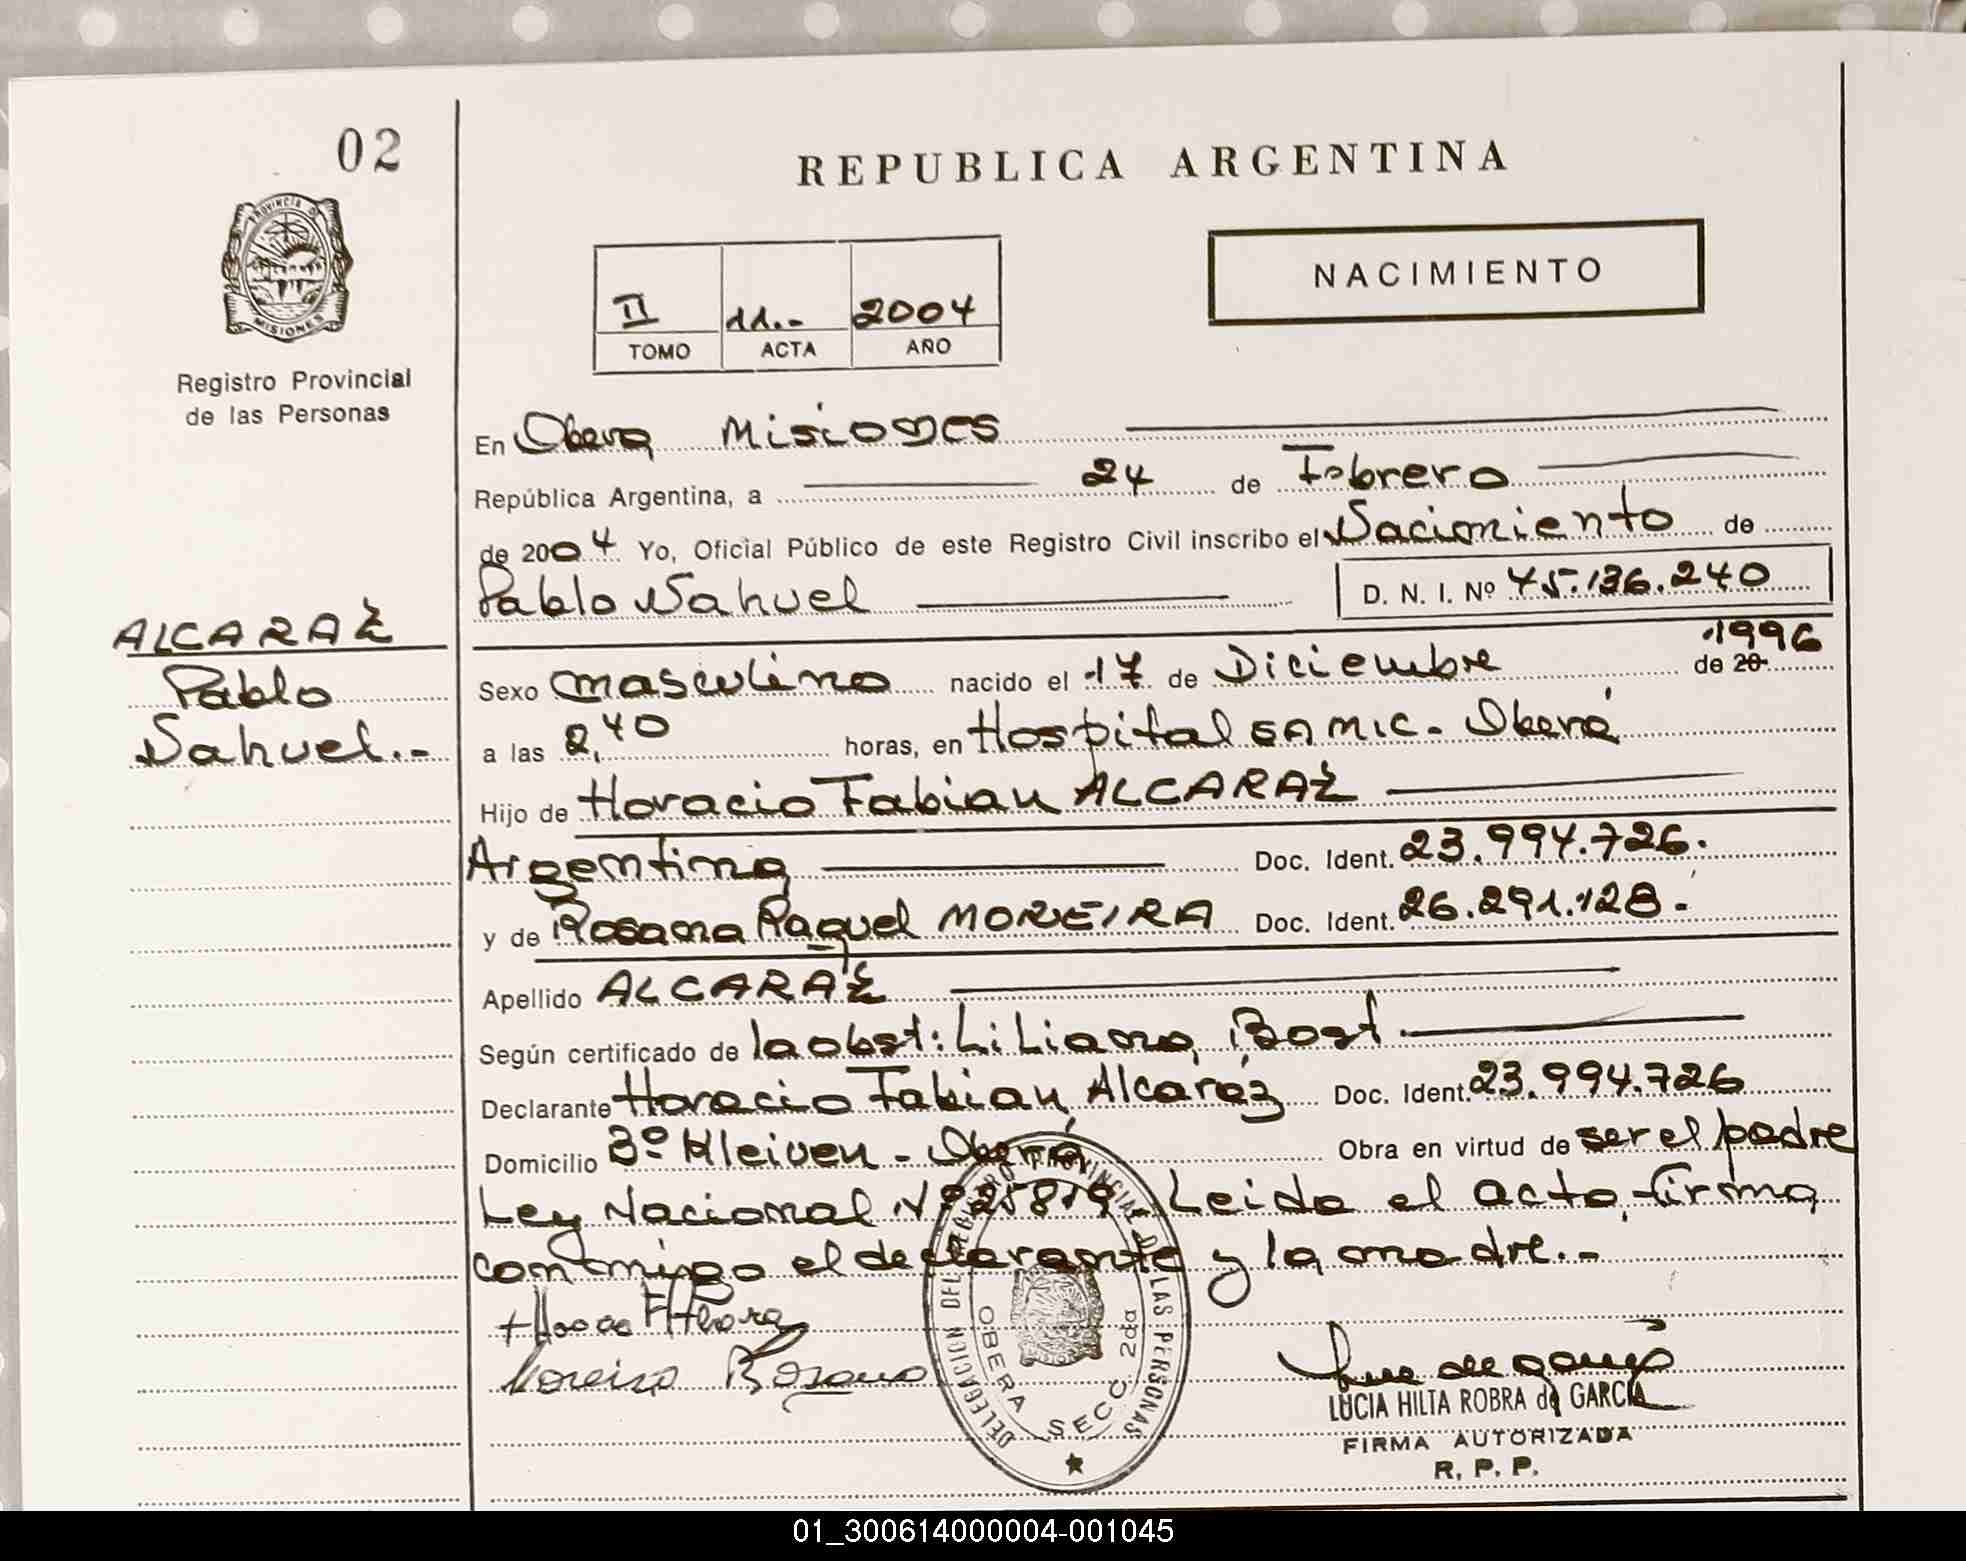 02
REPUBLICA ARGENTINA
PROVINCIA D
MISIONES
Registro Provincial
de las Personas
NACIMIENTO
II 11.- 2004
TOMO ACTA AÑO
En Obera Misiones
República Argentina, a 24 de Febrero
de 2004 Yo, Oficial Público de este Registro Civil inscribo el Nacimiento de
Pablo Nahuel D. N. I. Nº 45.136.240
ALCARAZ
Pablo
Nahuel.-
Sexo masculino nacido el 17 de Diciembre de 20 1996
a las 2,40 horas, en Hospital SAMIC. Oberá
Hijo de Horacio Fabian ALCARAZ
Argentina Doc. Ident. 23.994.726.
y de Rosana Raquel MOREIRA Doc. Ident. 26.291.128.
Apellido ALCARAZ
Según certificado de la obst: Liliana Bost
Declarante Horacio Fabian Alcaráz Doc. Ident. 23.994.726
Domicilio 3º Kleiven - Oberá Obra en virtud de ser el padre
Ley Nacional Nº 25819. Leido el acto, firma
conmigo el declarante y la madre.-
Moreira Rosana
DELEGACION DEL REGISTRO PROVINCIAL DE LAS PERSONAS
OBERA SECC. 2da
LUCIA HILTA ROBRA de GARCIA
FIRMA AUTORIZADA
R. P. P.
01_300614000004-001045